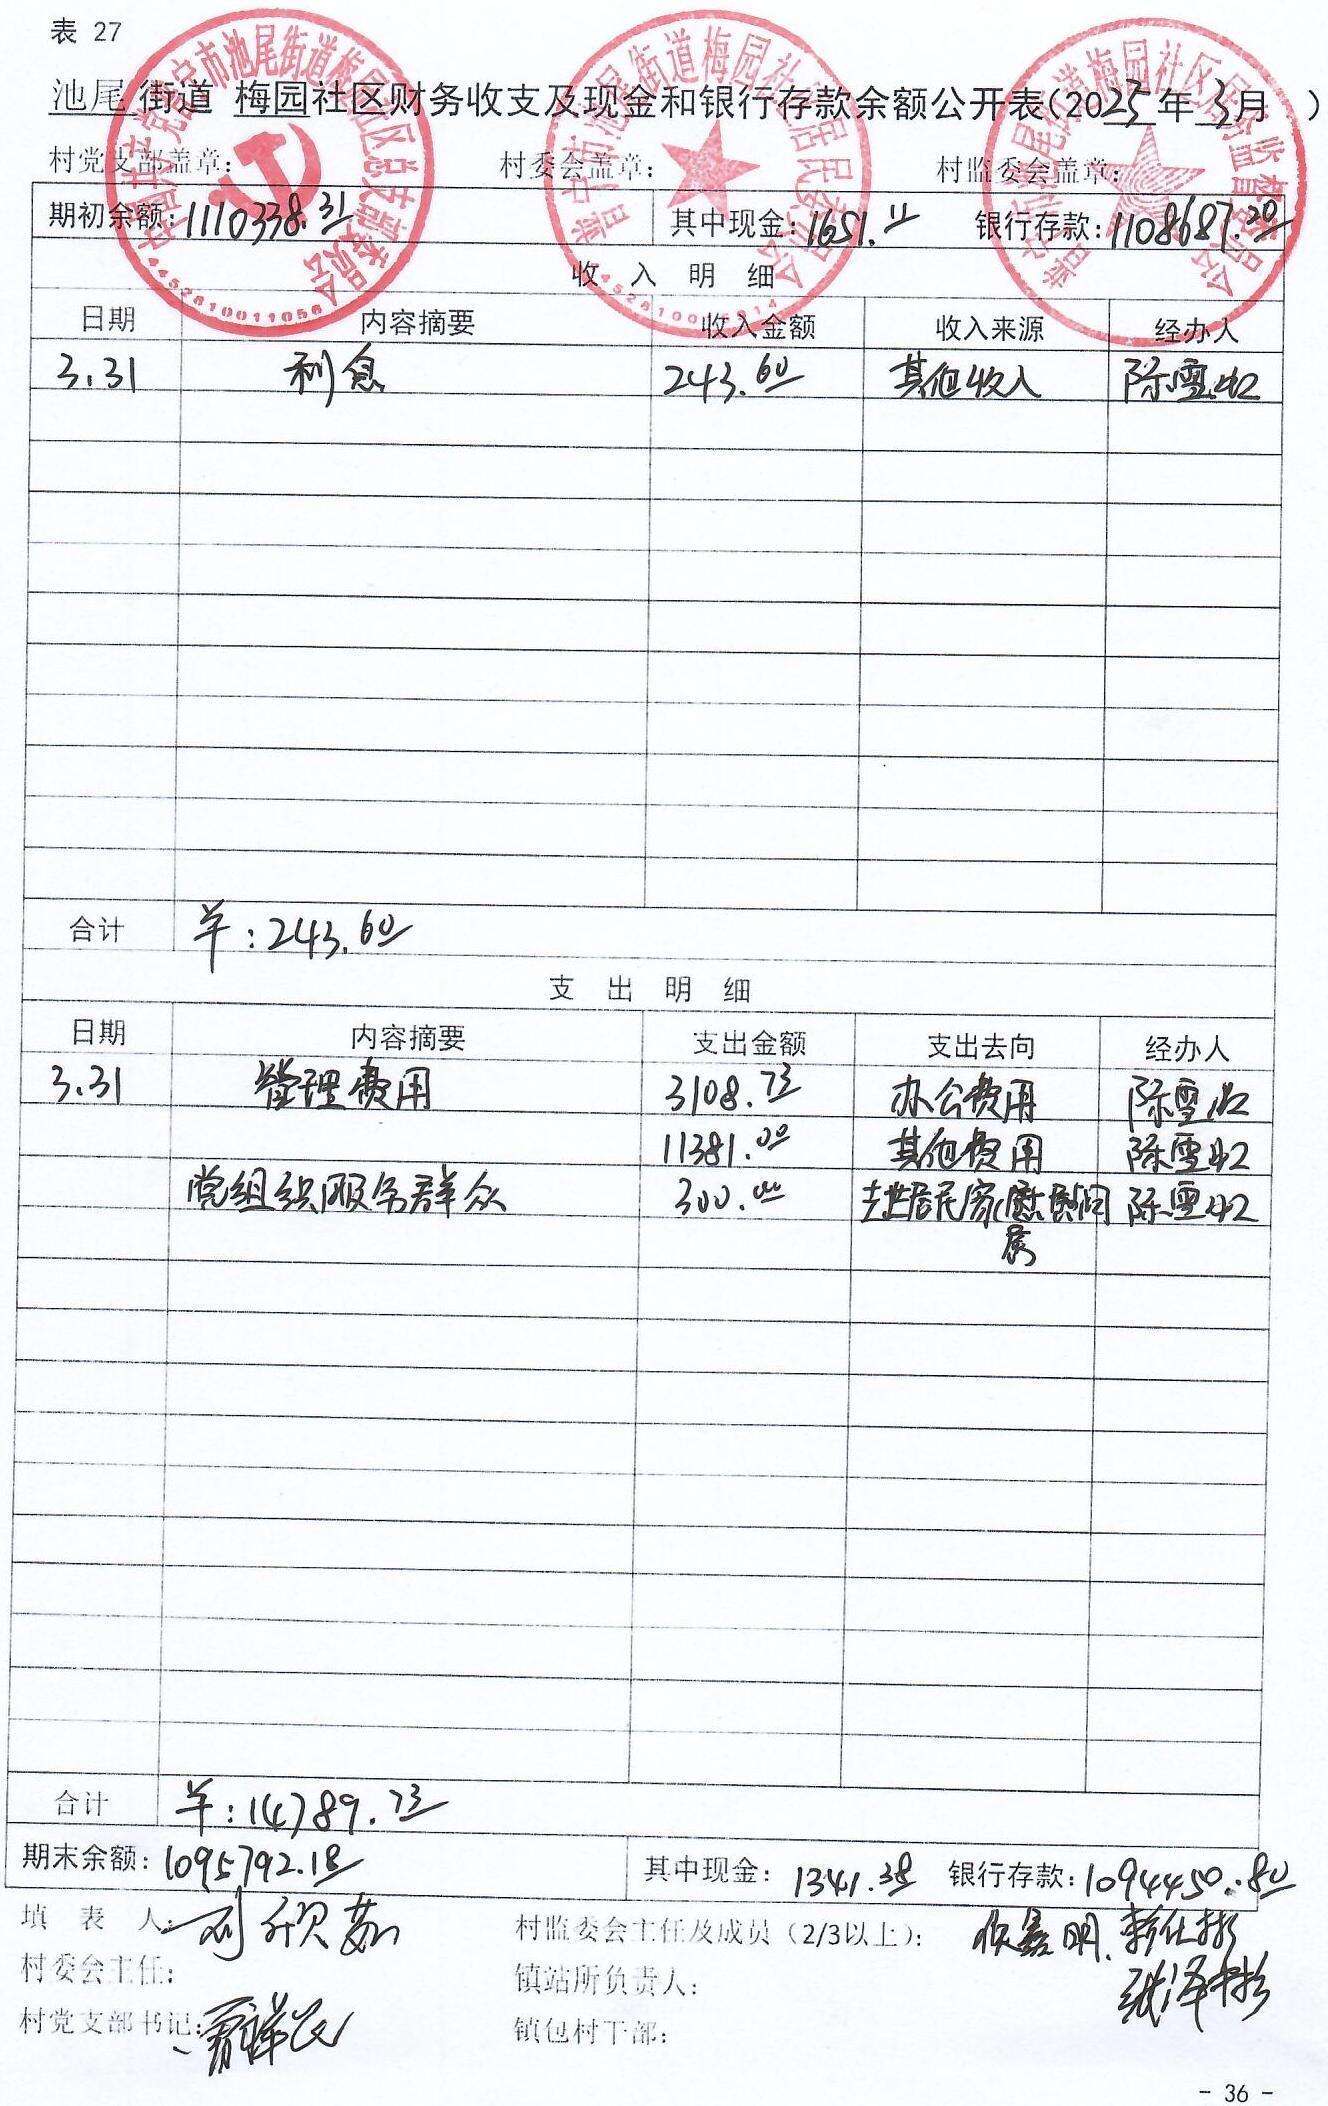 表 27
池尾 街道 梅园社区财务收支及现金和银行存款余额公开表(2025年 3月 )
村党支部盖章: 村委会盖章: 村监委会盖章:
期初余额:1110338.31 其中现金:1651.11 银行存款:1108687.20
收 入 明 细
日期 内容摘要 收入金额 收入来源 经办人
3.31 利息 243.60 其他收入 陈雪虹
合计 羊:243.60
支 出 明 细
日期 内容摘要 支出金额 支出去向 经办人
3.31 管理费用 3108.73 办公费用 陈雪虹
11381.00 其他费用 陈雪虹
党组织服务群众 300.00 居民家 慰问 陈雪虹
合计 羊:14789.73
期末余额:1095792.18 其中现金: 1341.38 银行存款:1094450.80
填 表 人: 刘欣茹 村监委会主任及成员(2/3以上):
村委会主任: 镇站所负责人: 张泽彬
村党支部书记: 镇包村干部:
- 36 -